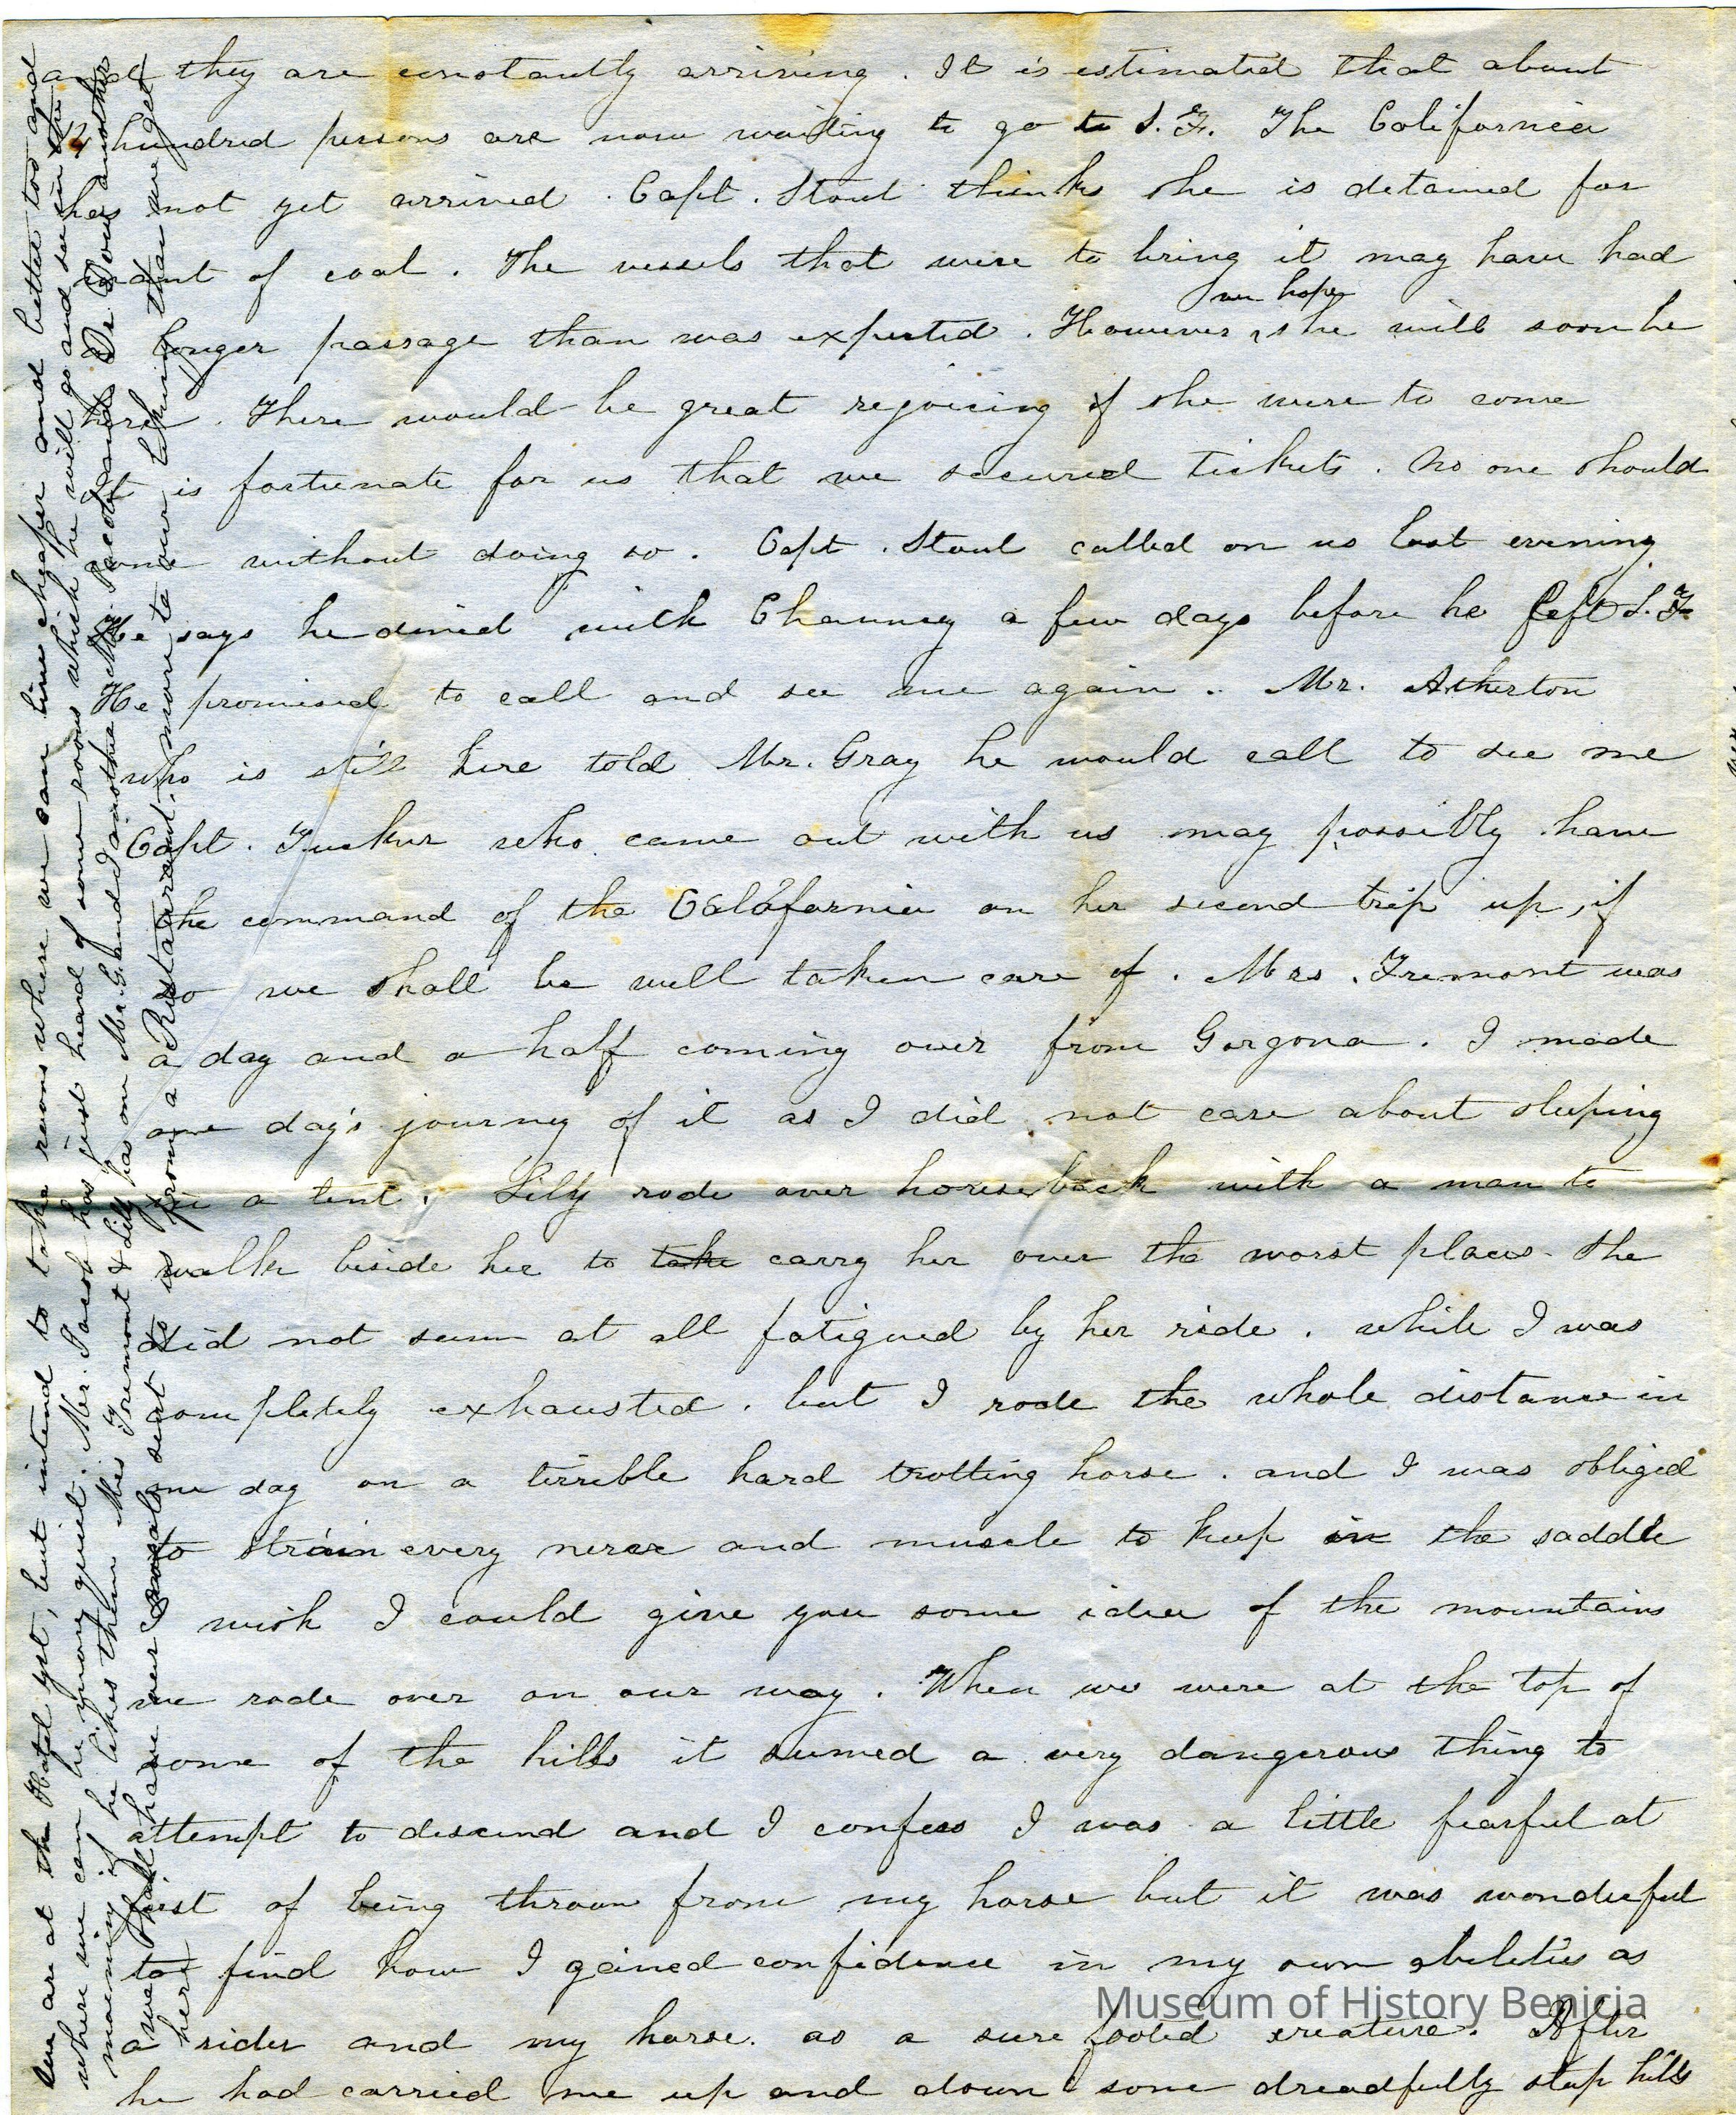 and they are constantly arriving. It is estimated that about
hundred persons are now waiting to go to S.F. The California
has not yet arrived. Capt. Stout thinks she is detained for
want of coal. The vessels that were to bring it may have had
we hope
a longer passage than was expected. However, she will soon be
here. There would be great rejoicing if she were to come
It is fortunate for us that we secured tickets. No one should
come without doing so. Capt. Stout called on us last evening
He says he dined with Chauncy a few days before he left S.F.
He promised to call and see me again. Mr. Atherton
who is still here told Mr. Gray he would call to see me
Capt. Tucker who came out with us may possibly have
the command of the California on her second trip up, if
so we shall be well taken care of. Mrs. Fremont was
a day and a half coming over from Gorgona. I made
one day's journey of it as I did not care about sleeping
in a tent. Lilly rode over horseback with a man to
walk beside her to take carry her over the worst places. She
did not seem at all fatigued by her ride. while I was
completely exhausted. but I rode the whole distance in
one day on a terrible hard trotting horse. and I was obliged
to strain every nerve and muscle to keep in the saddle
I wish I could give you some idea of the mountains
we rode over on our way. When we were at the top of
some of the hills it seemed a very dangerous thing to
attempt to descend and I confess I was a little fearful at
first of being thrown from my horse but it was wonderful
to find how I gained confidence in my own abilities as
a rider and my horse. as a sure footed creature. After
he had carried me up and down some dreadfully steep hills
We are at the Hotel yet, but intend to take rooms where we can live cheaper and better too and
where we can be more quiet. Mr. Jacob has just heard of some rooms which he will go and see in the
morning if he likes them Mrs Fremont & Lilly has one Mr. G. and I another Mr. Jacob and Dr Dow another
we shall have our meals sent to us from a Restaurant. more to our liking than we get
here
Museum of History Benicia